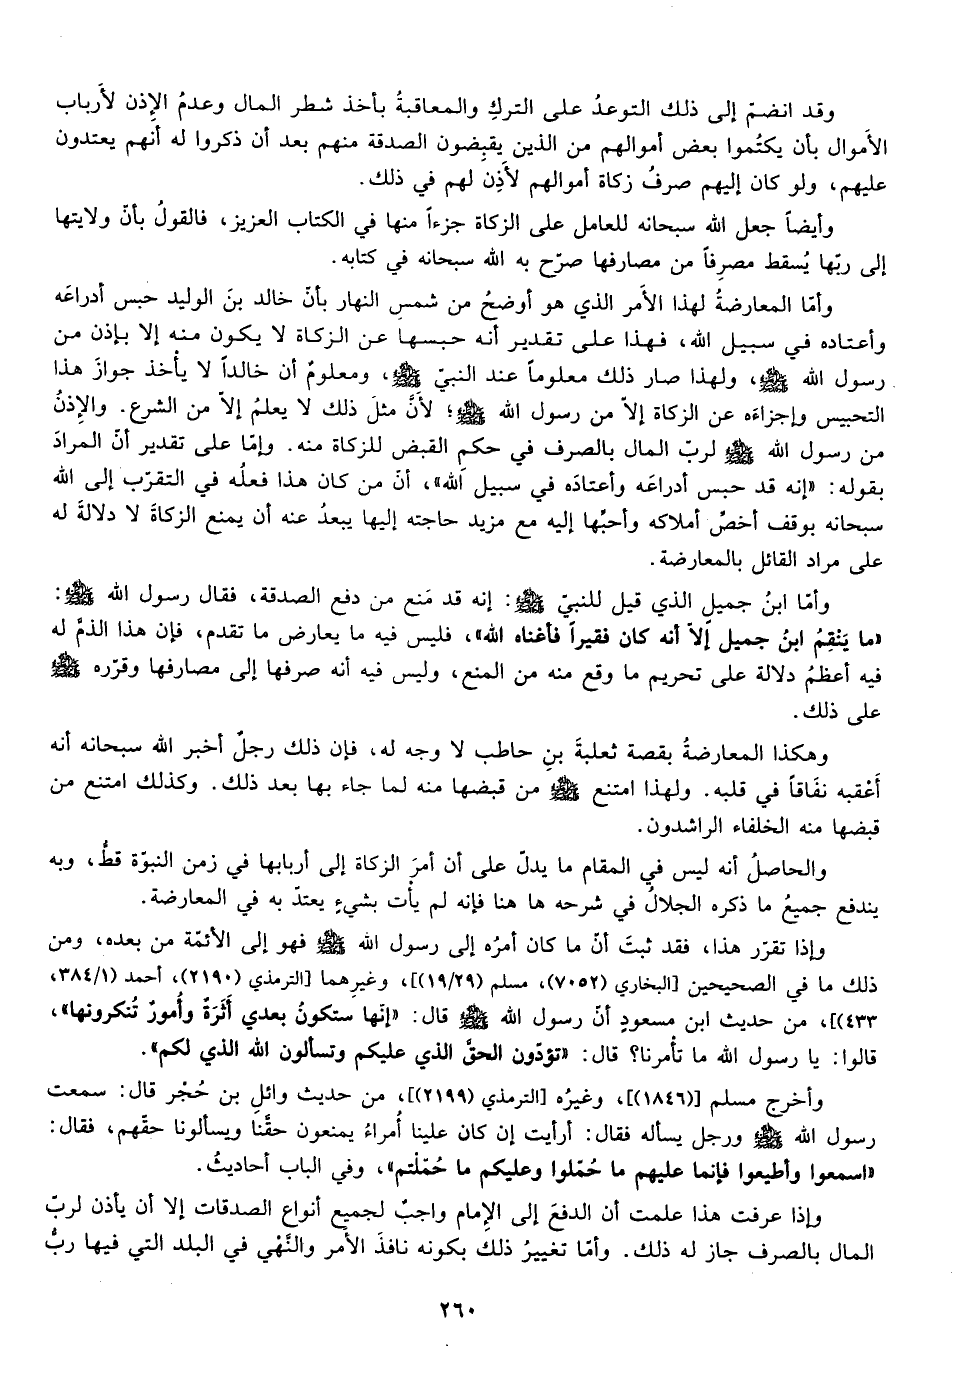 وقد انضمّ إلى ذلك التوعدُ على التركِ والمعاقبةُ بأخذ شطر المال وعدمُ الإِذن لأَرباب
الأَموال بأن يكتُموا بعض أموالهم من الذين يقبِضون الصدقة منهم بعد أن ذكروا له أنهم يعتدون
عليهم، ولو كان إليهم صرفُ زكاة أموالهم لأَذِن لهم في ذلك.
وأيضاً جعل الله سبحانه للعامل على الزكاة جزءاً منها في الكتاب العزيز، فالقولُ بأنّ ولايتها
إلى ربّها يُسقط مصرِفاً من مصارفها صرّح به الله سبحانه في كتابه.
وأمّا المعارضةُ لهذا الأَمر الذي هو أوضحُ من شمسِ النهار بأنّ خالد بنَ الوليد حبس أدراعَه
وأعتاده في سبيل الله، فهذا على تقدير أنه حبسها عن الزكاة لا يكون منه إلا بإذن من
رسول الله ﷺ، ولهذا صار ذلك معلوماً عند النبيّ ﷺ، ومعلومٌ أن خالداً لا يأْخذ جوازَ هذا
التحبيس وإجزاءَه عن الزكاة إلاّ من رسول الله ﷺ؛ لأَنَّ مثلَ ذلك لا يعلمُ إلاّ من الشرع. والإِذنُ
من رسول الله ﷺ لربّ المال بالصرف في حكم القبض للزكاة منه. وإمّا على تقدير أنّ المرادَ
بقوله: «إنه قد حبس أدراعَه وأعتادَه في سبيل الله»، أنّ من كان هذا فعلُه في التقرّب إلى الله
سبحانه بوقف أخصِّ أملاكه وأحبِّها إليه مع مزيد حاجته إليها يبعدُ عنه أن يمنع الزكاةَ لا دلالةَ له
على مراد القائل بالمعارضة.
وأمّا ابنُ جميلٍ الذي قيل للنبيّ ﷺ: إنه قد مَنع من دفع الصدقة، فقال رسول الله ﷺ:
«ما يَنْقِمُ ابنُ جميل إلاّ أنه كان فقيراً فأغناه الله»، فليس فيه ما يعارض ما تقدم، فإن هذا الذمَّ له
فيه أعظمُ دلالة على تحريم ما وقع منه من المنع، وليس فيه أنه صرفها إلى مصارفها وقرّره ﷺ
على ذلك.
وهكذا المعارضةُ بقصة ثعلبةَ بنِ حاطب لا وجه له، فإن ذلك رجلٌ أخبر الله سبحانه أنه
أَعْقبه نفَاقاً في قلبه. ولهذا امتنع ﷺ من قبضها منه لما جاء بها بعد ذلك. وكذلك امتنع من
قبضها منه الخلفاء الراشدون.
والحاصلُ أنه ليس في المقام ما يدلّ على أن أمرَ الزكاة إلى أربابها في زمن النبوّة قطُّ، وبه
يندفع جميعُ ما ذكره الجلالُ في شرحه ها هنا فإنه لم يأت بشيءٍ يعتدّ به في المعارضة.
وإذا تقرّر هذا، فقد ثبتَ أنّ ما كان أمرُه إلى رسول الله ﷺ فهو إلى الأئمّة من بعده، ومن
ذلك ما في الصحيحين [البخاري (٧٠٥٢)، مسلم (١٩/٢٩)]، وغيرِهما [الترمذي (٢١٩٠)، أحمد (٣٨٤/١،
٤٣٣)]، من حديث ابن مسعودٍ أنّ رسول الله ﷺ قال: «إنّها ستكونُ بعدي أَثَرَةً وأُمورٌ تُنكرونها»،
قالوا: يا رسول الله ما تأْمرنا؟ قال: «تؤدّون الحقَّ الذي عليكم وتسألون الله الذي لكم».
وأخرج مسلم [(١٨٤٦)]، وغيرُه [الترمذي (٢١٩٩)]، من حديث وائلِ بن حُجْر قال: سمعت
رسول الله ﷺ ورجل يسأله فقال: أرأيت إن كان علينا أُمراءُ يمنعون حقَّنا ويسألونا حقّهم، فقال:
«اسمعوا وأطيعوا فإنما عليهم ما حُمّلوا وعليكم ما حُمّلْتم»، وفي الباب أحاديثُ.
وإذا عرفت هذا علمت أن الدفعَ إلى الإِمام واجبٌ لجميع أنواع الصدقات إلا أن يأذن لربّ
المال بالصرف جاز له ذلك. وأمّا تغييرُ ذلك بكونه نافذَ الأَمر والنَّهْي في البلد التي فيها ربُّ
٢٦٠